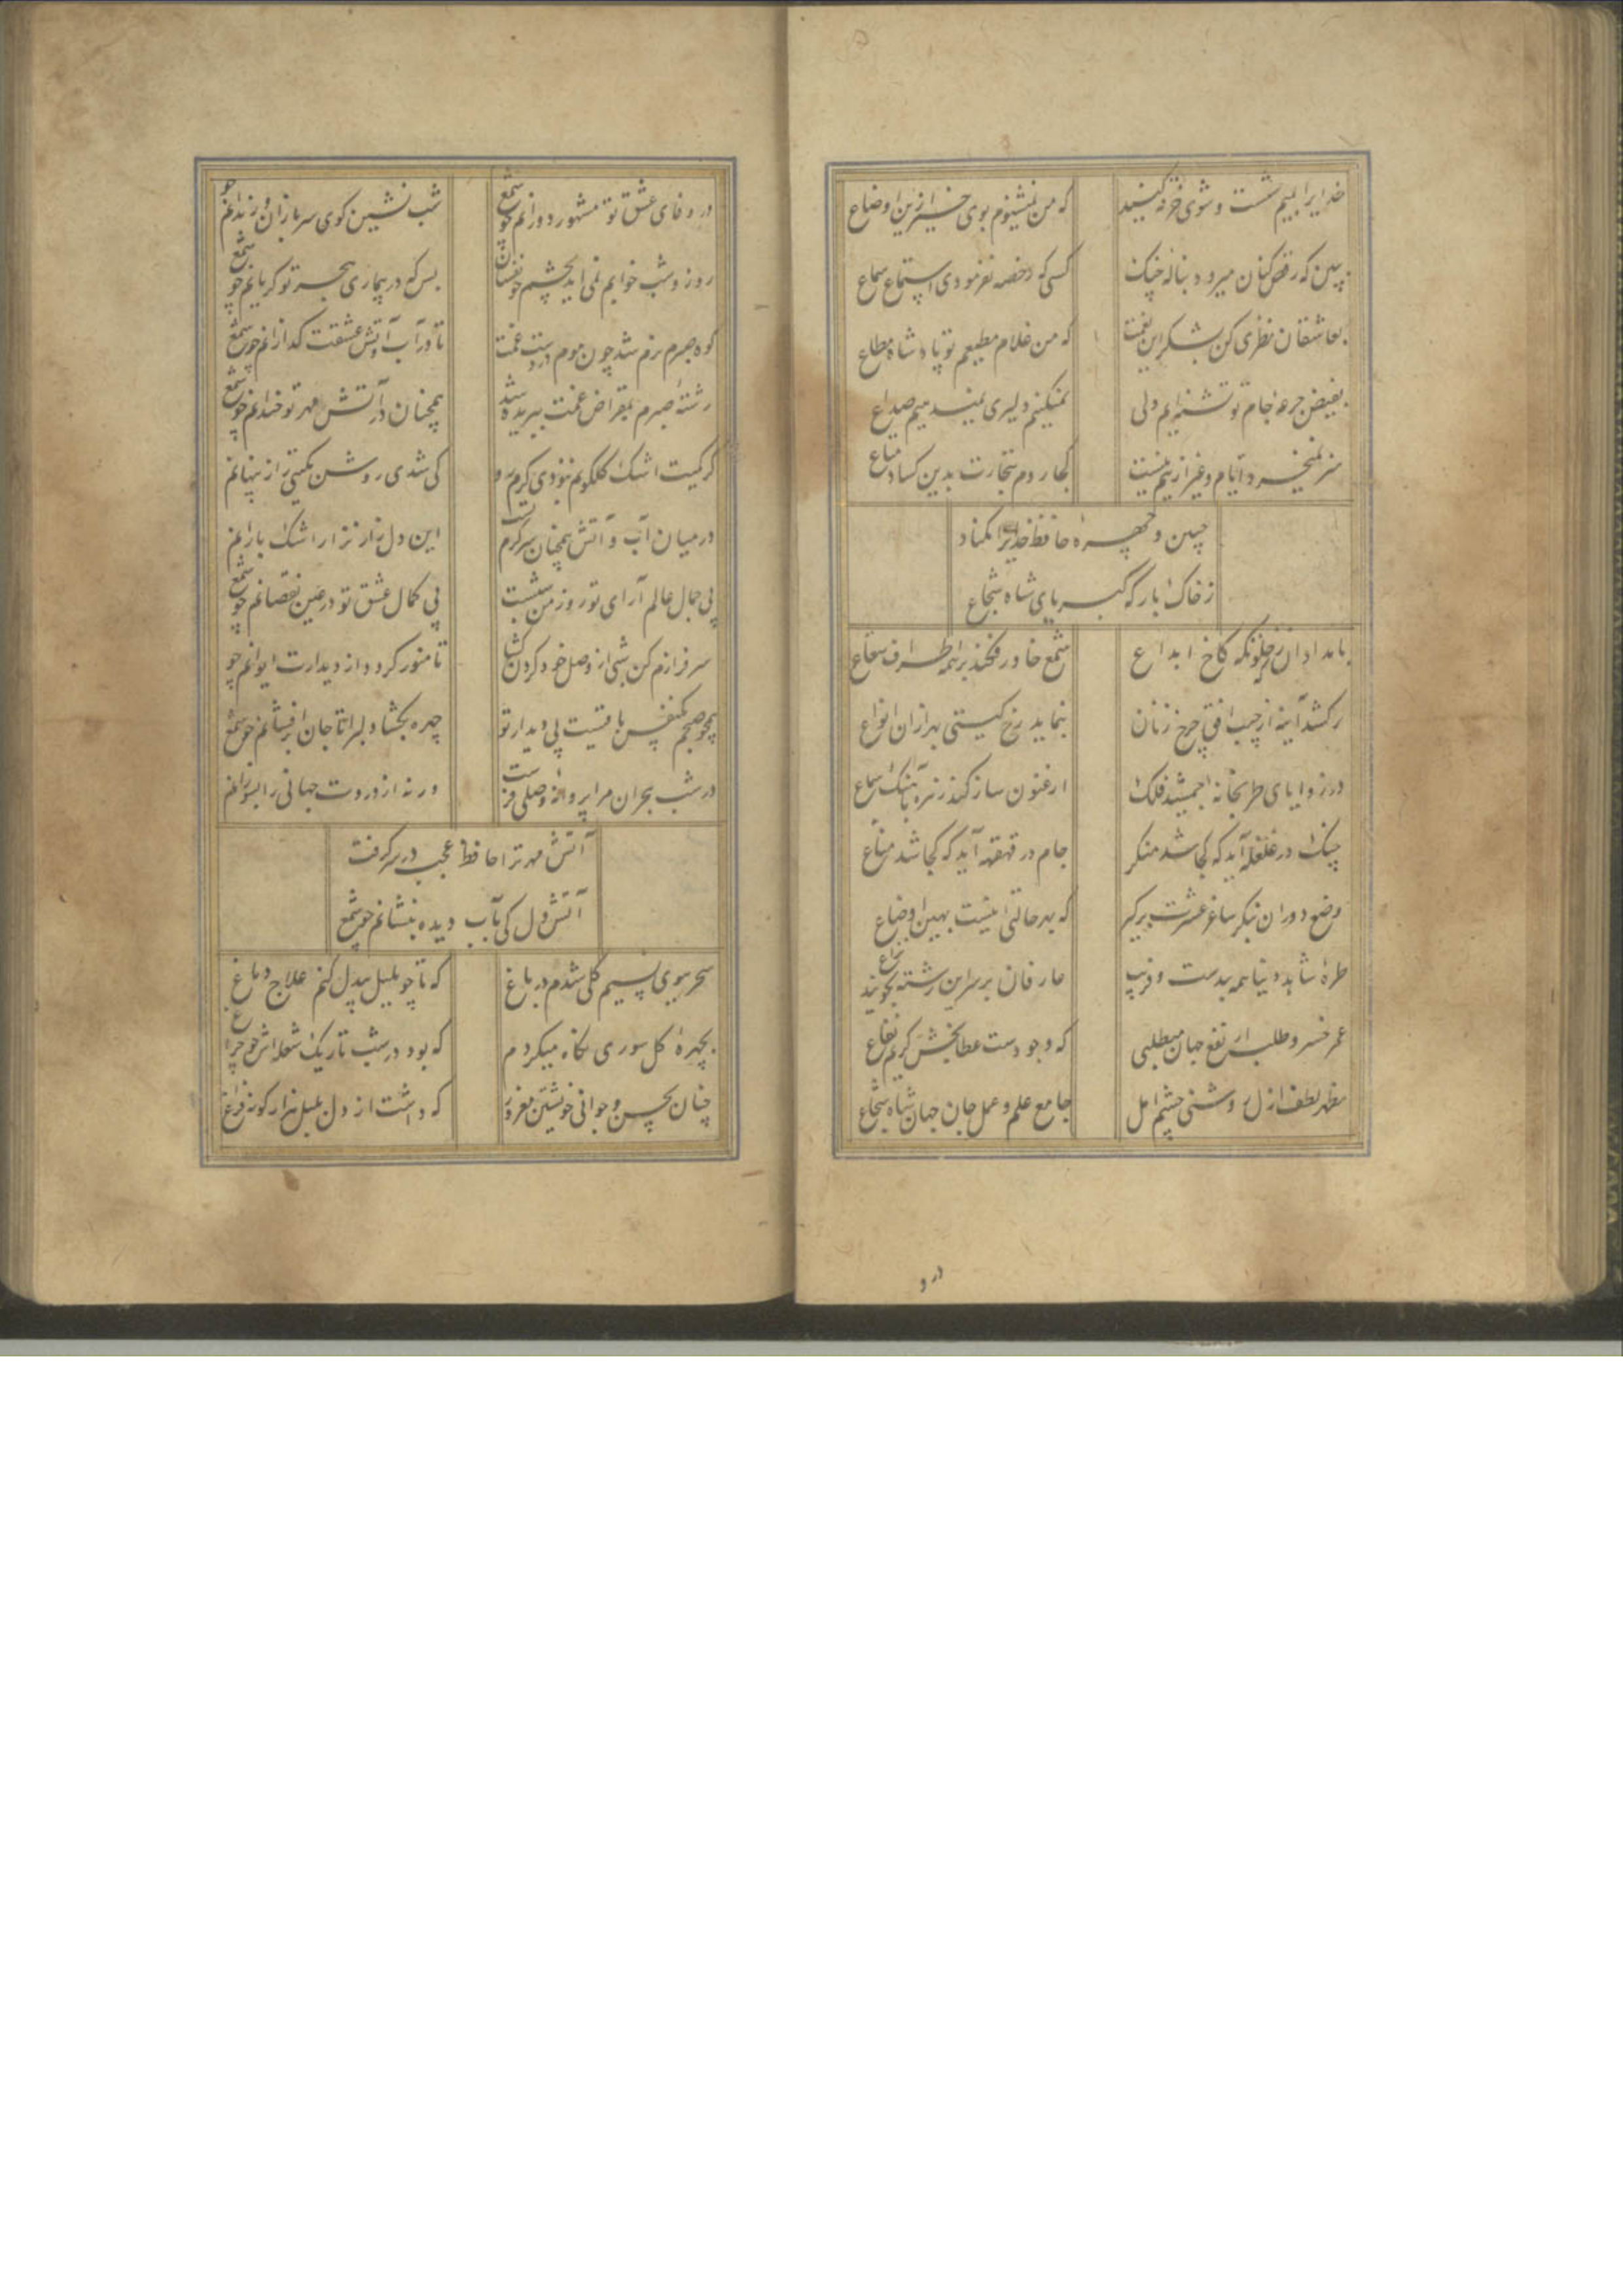 خدایرا بمیم شست و شوی خرقه کنید
که من نمیشنوم بوی خیر ازین اوضاع
ببین که رقص کنان میرود بناله چنک
کسی که رخصه نفرمودی استماع سماع
بعاشقان نظری کن بشکر این نعمت
که من غلام مطیعم تو پادشاه مطاع
بفیض جرعه جام تو تشنه‌ایم ولی
نمیکنیم دلیری نمیدهیم صداع
هنر نمیخرد ایام و غیر ازینم نیست
کجا روم بتجارت بدین کساد متاع
جبین و چهره حافظ خدا جدا مکناد
زخاک بارکه کبریای شاه شجاع
بامدادان که زخلوتکه کاخ ابداع
شمع خاور فکند بر همه اطراف شعاع
برکشد آینه از جیب افق چرخ زنان
بنماید رخ کیتی بهزاران انواع
در زوایای طربخانه جمشید فلک
ارغنون ساز کند زهره بآهنک سماع
چنک در غلغله آید که کجا شد منکر
جام در قهقهه آید که کجا شد مناع
وضع دوران بنکر ساغر عشرت برکیر
که بهر حالتی اینست بهین اوضاع
طره شاهد دنیا همه بندست و فریب
عارفان بر سر این رشته نجویند نزاع
عمر خسرو طلب ار نفع جهان میطلبی
که وجودیست عطابخش کریم نفاع
مظهر لطف ازل روشنی چشم امل
جامع علم و عمل جان جهان شاه شجاع
در و
در وفای عشق تو مشهور دورانم چو شمع
شب نشین کوی سربازان و رندانم چو
روز و شب خوابم نمی اید بچشم خونفشان
بس که در بیماری هجر تو کریانم چو شمع
کوه صبرم نرم شد چون موم در دست غمت
تا در آب و آتش عشقت کدازانم چو شمع
رشته صبرم بمقراض غمت ببریده شد
همچنان در آتش مهر تو خندانم چو شمع
کر کمیت اشک کلکونم نبودی کرم رو
کی شدی روشن بکیتی راز پنهانم
در میان آب و آتش همچنان سرکرم تست
این دل زار نزار اشک بارانم
بی جمال عالم آرای تو روزم چون شبست
بی کمال عشق تو در عین نقصانم چو شمع
سرفرازم کن شبی از وصل خود کردن کشا
تا منور کردد از دیدارت ایوانم چو
همچو صبحم یکنفس باقیست بی دیدار تو
چهره بکشا دلبرا تا جان برافشانم چو شمع
در شب هجران مرا پروانه وصلی فرست
ورنه از دردت جهانی را بسوزانم
آتش مهر ترا حافظ عجب در سر کرفت
آتش دل کی بآب دیده بنشانم چو شمع
سحر ببوی نسیم کلی شدم در باغ
که تا چو بلبل بیدل کنم علاج دماغ
بچهره کل سوری نکاه میکردم
که بود در شب تاریک شعله اش چو چراغ
چنان بحسن و جوانی خویشتن مغرور
که داشت از دل بلبل هزار کونه فراغ